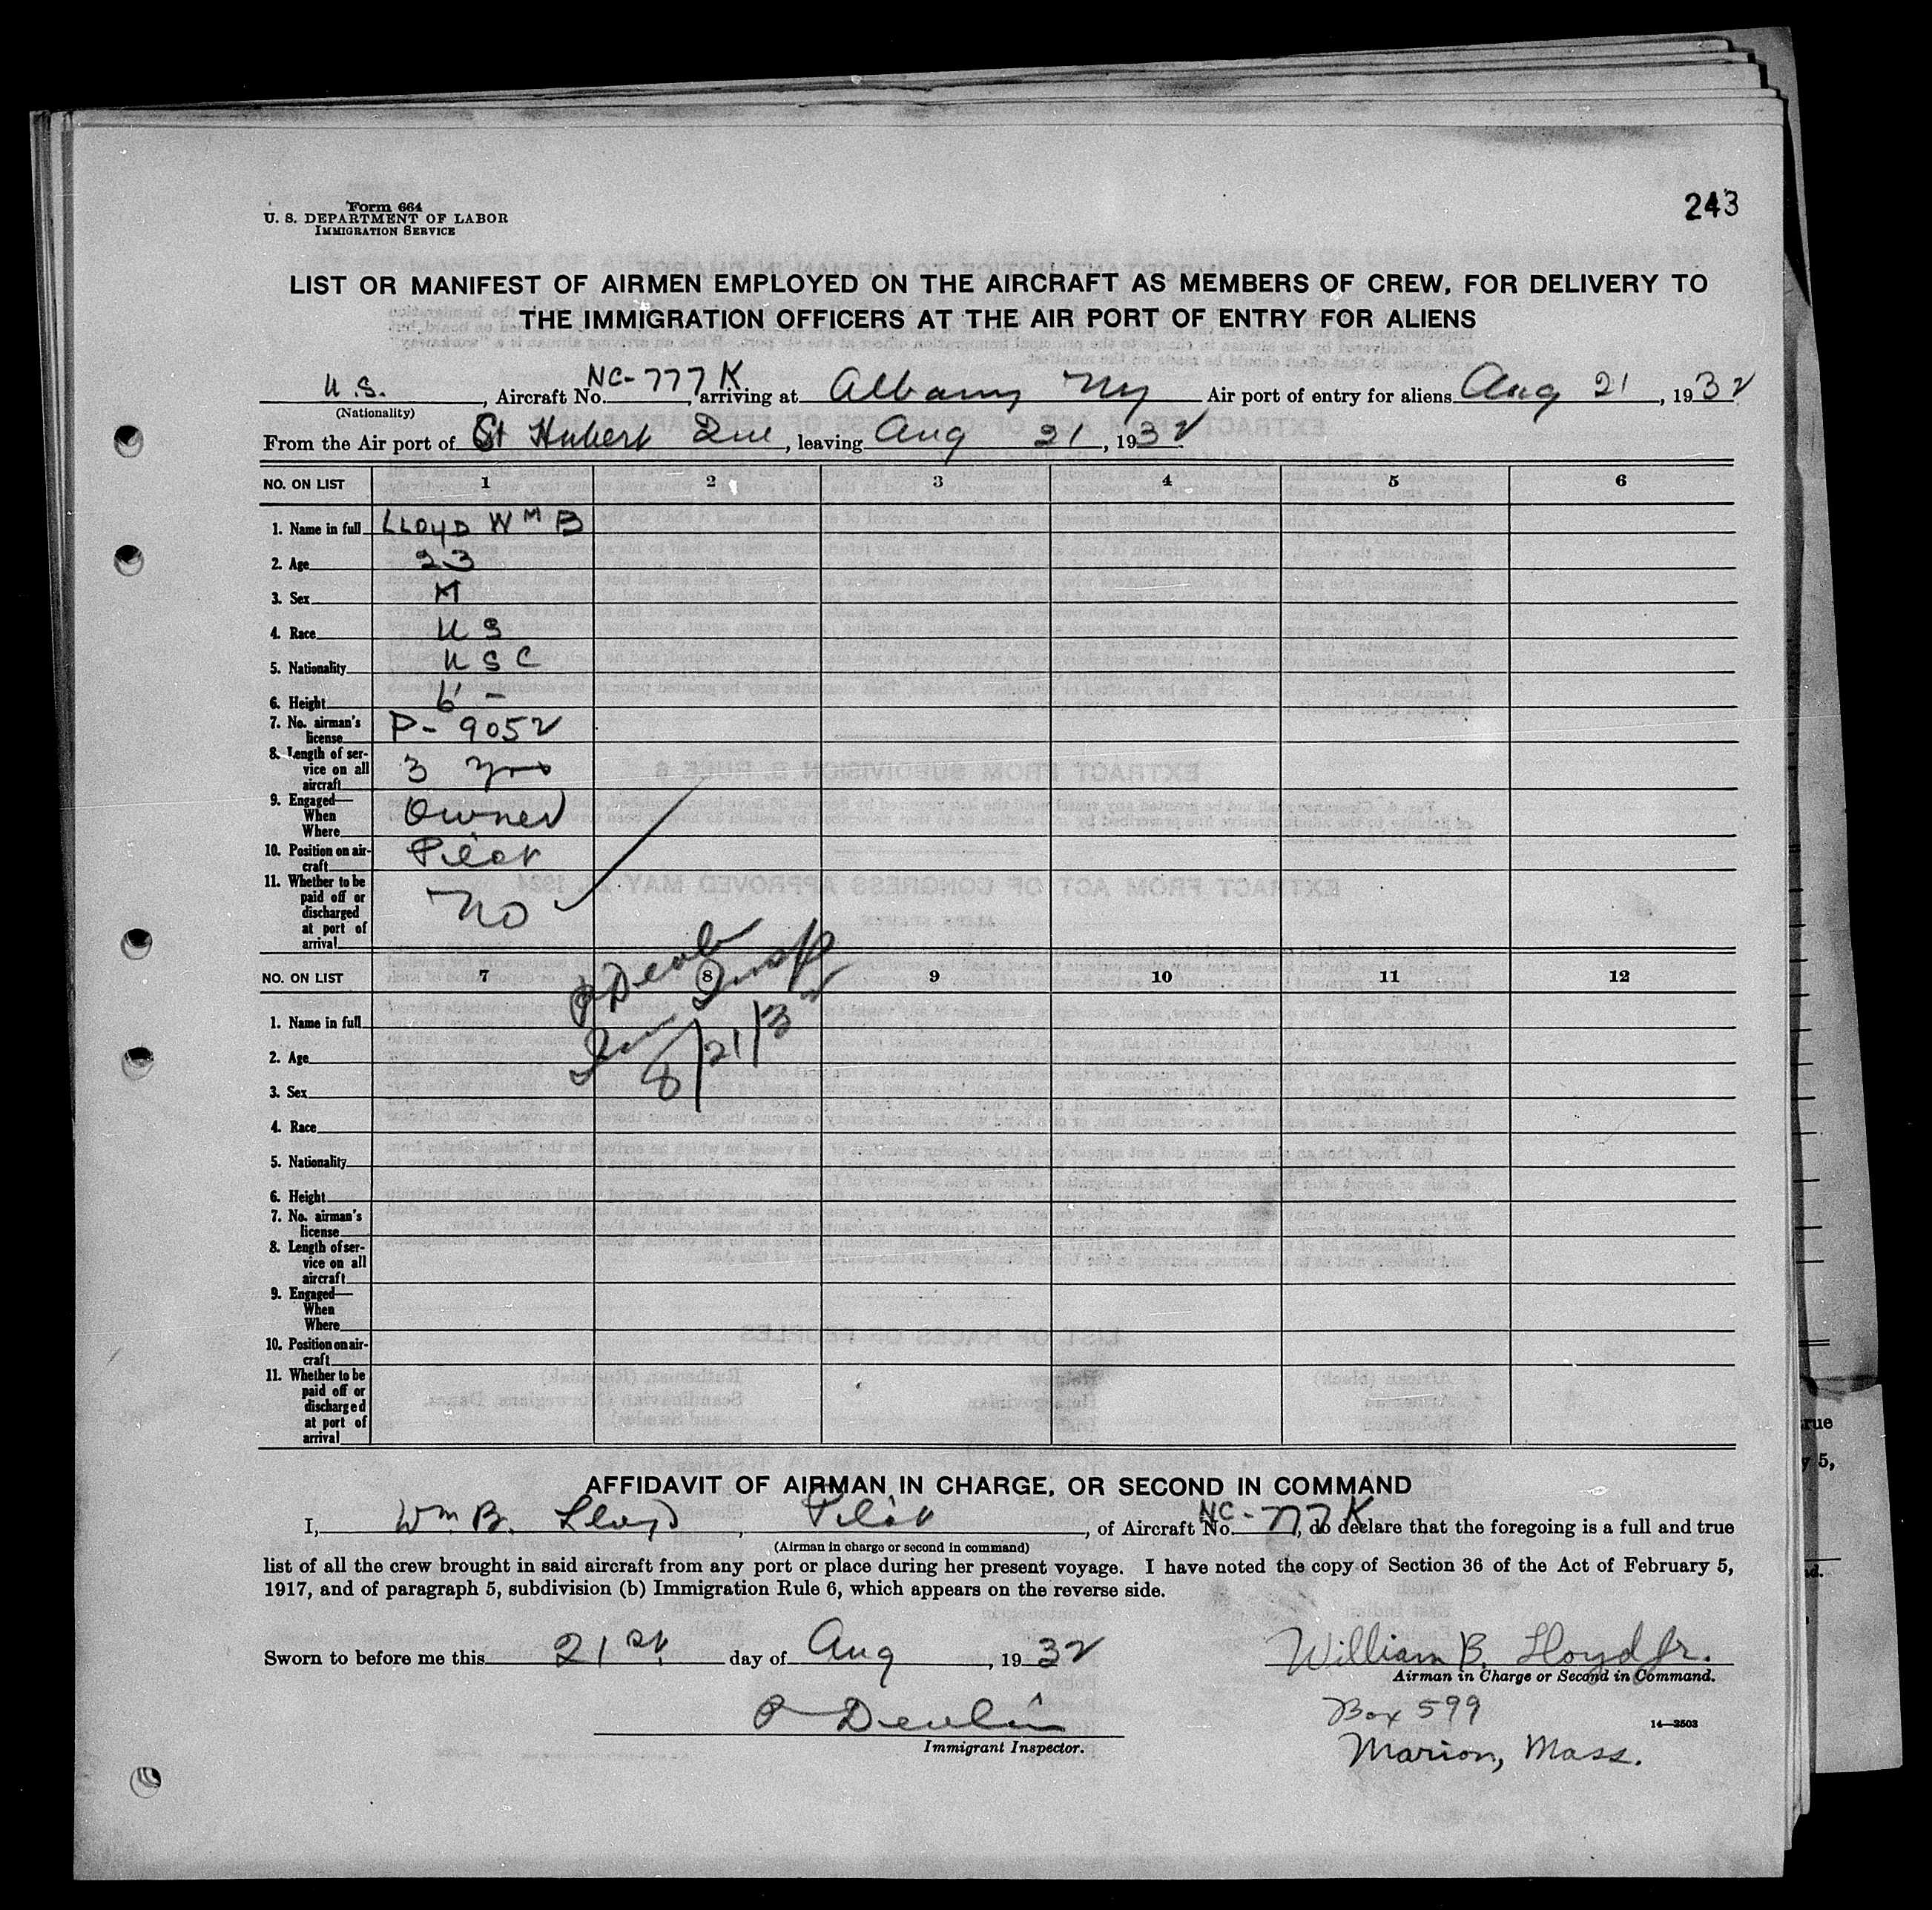 Form 664
U. S. DEPARTMENT OF LABOR
IMMIGRATION SERVICE
243
LIST OR MANIFEST OF AIRMEN EMPLOYED ON THE AIRCRAFT AS MEMBERS OF CREW, FOR DELIVERY TO
THE IMMIGRATION OFFICERS AT THE AIR PORT OF ENTRY FOR ALIENS
U.S., Aircraft No. NC-777K, arriving at Albany NY Air port of entry for aliens Aug 21, 1932
(Nationality)
From the Air port of St Hubert Que, leaving Aug 21, 1932
NO. ON LIST 1 2 3 4 5 6
1. Name in full LLOYD WM B
2. Age 23
3. Sex M
4. Race U S
5. Nationality U S C
6. Height 6' -
7. No. airman's license P-9052
8. Length of service on all aircraft 3 yrs
9. Engaged— When Where Owner
10. Position on aircraft Pilot
11. Whether to be paid off or discharged at port of arrival No
P Devlin
Imm Insp
8/21/32
NO. ON LIST 7 8 9 10 11 12
1. Name in full
2. Age
3. Sex
4. Race
5. Nationality
6. Height
7. No. airman's license
8. Length of service on all aircraft
9. Engaged— When Where
10. Position on aircraft
11. Whether to be paid off or discharged at port of arrival
AFFIDAVIT OF AIRMAN IN CHARGE, OR SECOND IN COMMAND
I, Wm B. Lloyd, Pilot, of Aircraft No. NC-777K, do declare that the foregoing is a full and true
(Airman in charge or second in command)
list of all the crew brought in said aircraft from any port or place during her present voyage. I have noted the copy of Section 36 of the Act of February 5,
1917, and of paragraph 5, subdivision (b) Immigration Rule 6, which appears on the reverse side.
Sworn to before me this 21st day of Aug, 1932
William B. Lloyd Jr.
Airman in Charge or Second in Command.
P Devlin
Immigrant Inspector.
Box 599
Marion, Mass.
14—3503